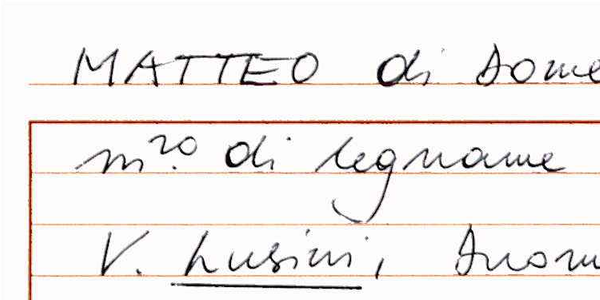 MATTEO di Dome
m.ro di legname
V. Lusini, Duom